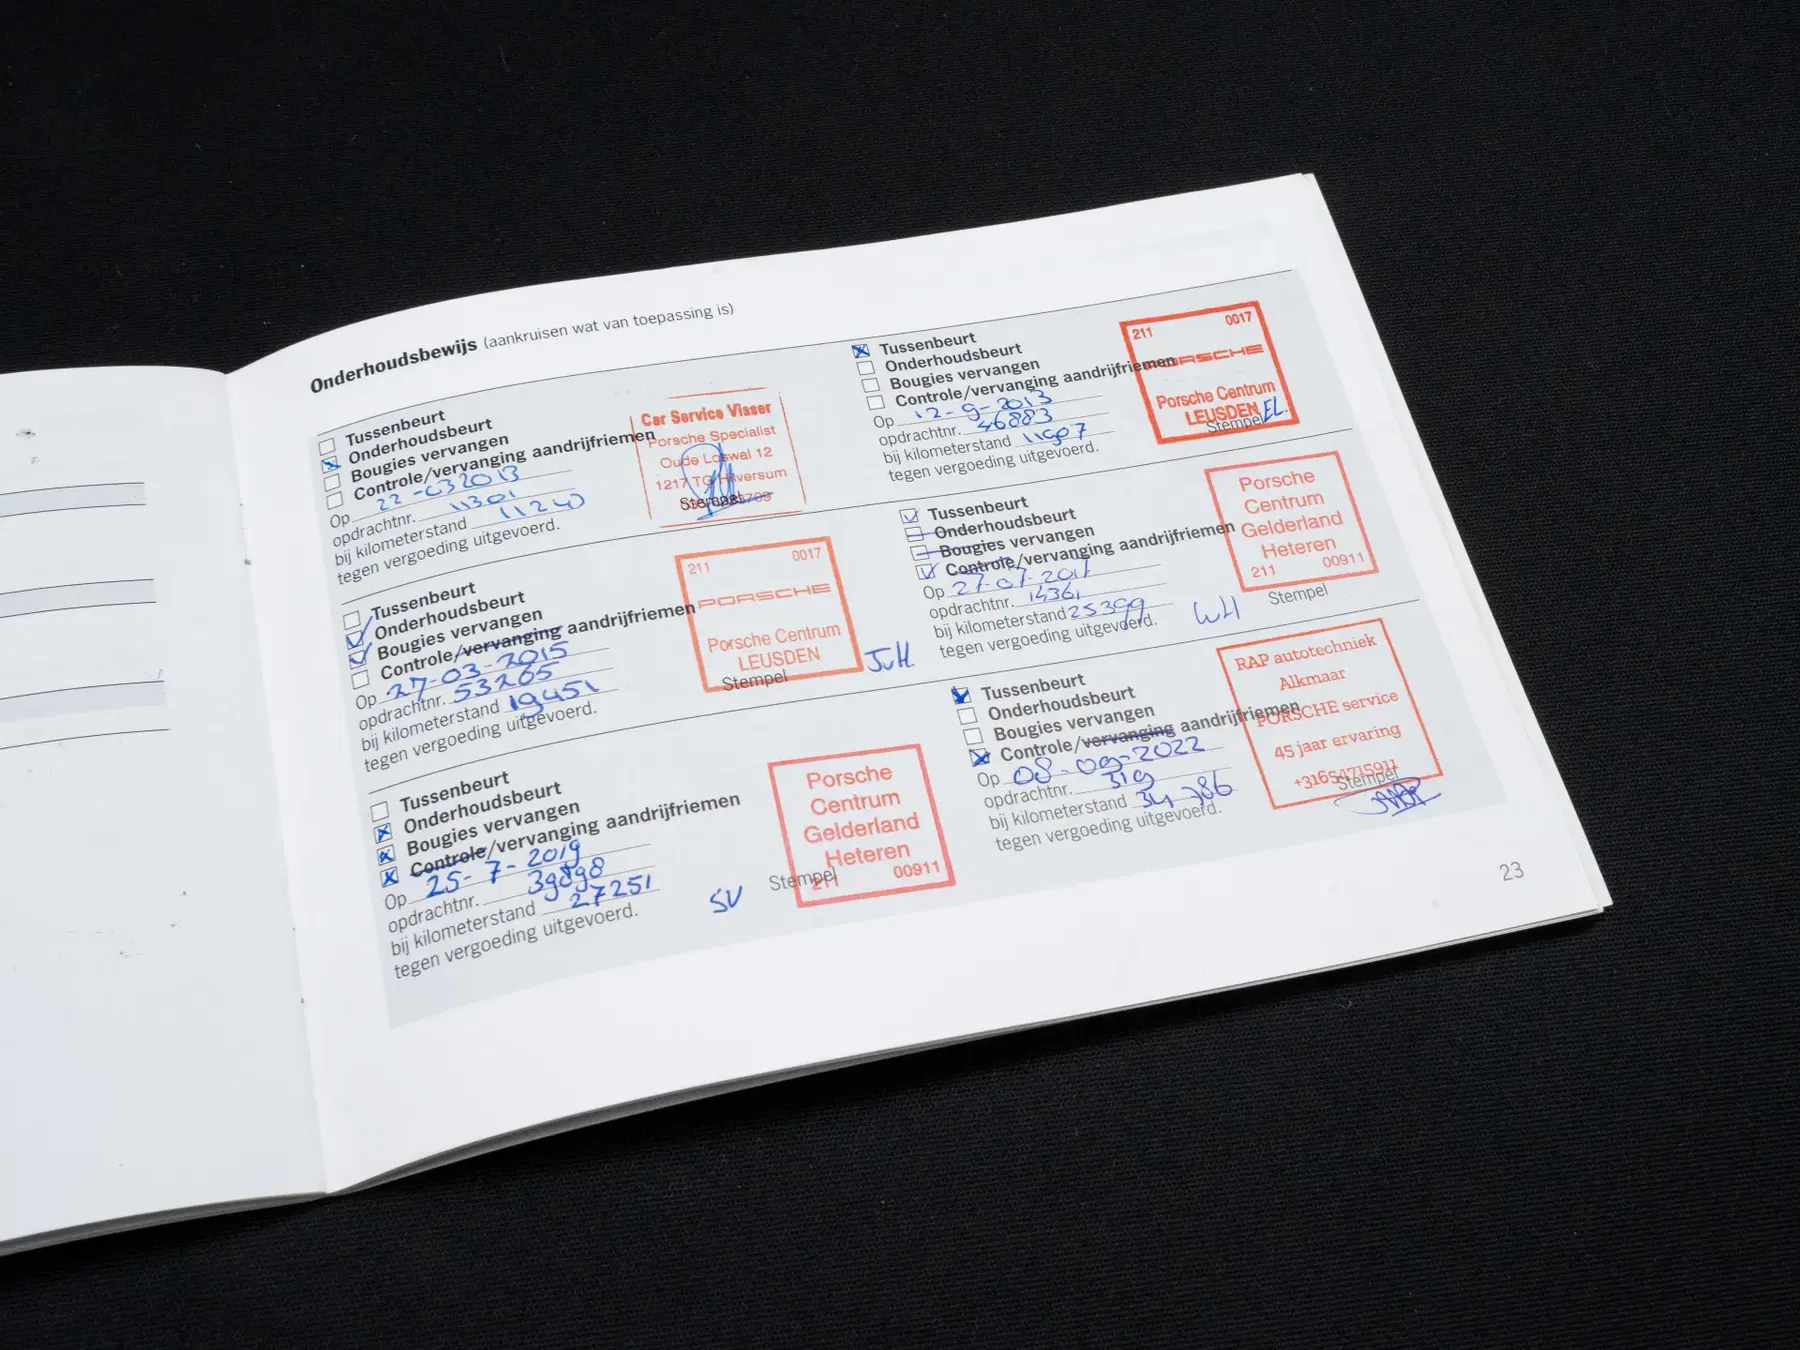 Onderhoudsbewijs (aankruisen wat van toepassing is)
Tussenbeurt
Onderhoudsbeurt
Bougies vervangen
Controle/vervanging aandrijfriemen
Op 22-03 2013
opdrachtnr. 11301
bij kilometerstand 11240
tegen vergoeding uitgevoerd.
Car Service Visser
Porsche Specialist
Oude Loswal 12
1217 TG Hilversum
Stempel
Tussenbeurt
Onderhoudsbeurt
Bougies vervangen
Controle/vervanging aandrijfriemen
Op 12-9-2013
opdrachtnr. 46883
bij kilometerstand 11907
tegen vergoeding uitgevoerd.
211 0017
PORSCHE
Porsche Centrum
LEUSDEN
Stempel EL.
Tussenbeurt
Onderhoudsbeurt
Bougies vervangen
Controle/vervanging aandrijfriemen
Op 27-03-2015
opdrachtnr. 53265
bij kilometerstand 19451
tegen vergoeding uitgevoerd.
211 0017
PORSCHE
Porsche Centrum
LEUSDEN
Stempel
JvH
Tussenbeurt
Onderhoudsbeurt
Bougies vervangen
Controle/vervanging aandrijfriemen
Op 27-07-2017
opdrachtnr. 14361
bij kilometerstand 25399
tegen vergoeding uitgevoerd.
WH
Porsche
Centrum
Gelderland
Heteren
211 00911
Stempel
Tussenbeurt
Onderhoudsbeurt
Bougies vervangen
Controle/vervanging aandrijfriemen
Op 25-7-2019
opdrachtnr. 39898
bij kilometerstand 27251
tegen vergoeding uitgevoerd.
SV
Porsche
Centrum
Gelderland
Heteren
211 00911
Stempel
Tussenbeurt
Onderhoudsbeurt
Bougies vervangen
Controle/vervanging aandrijfriemen
Op 08-09-2022
opdrachtnr. 319
bij kilometerstand 34786
tegen vergoeding uitgevoerd.
RAP autotechniek
Alkmaar
PORSCHE service
45 jaar ervaring
+31654715911
Stempel
23